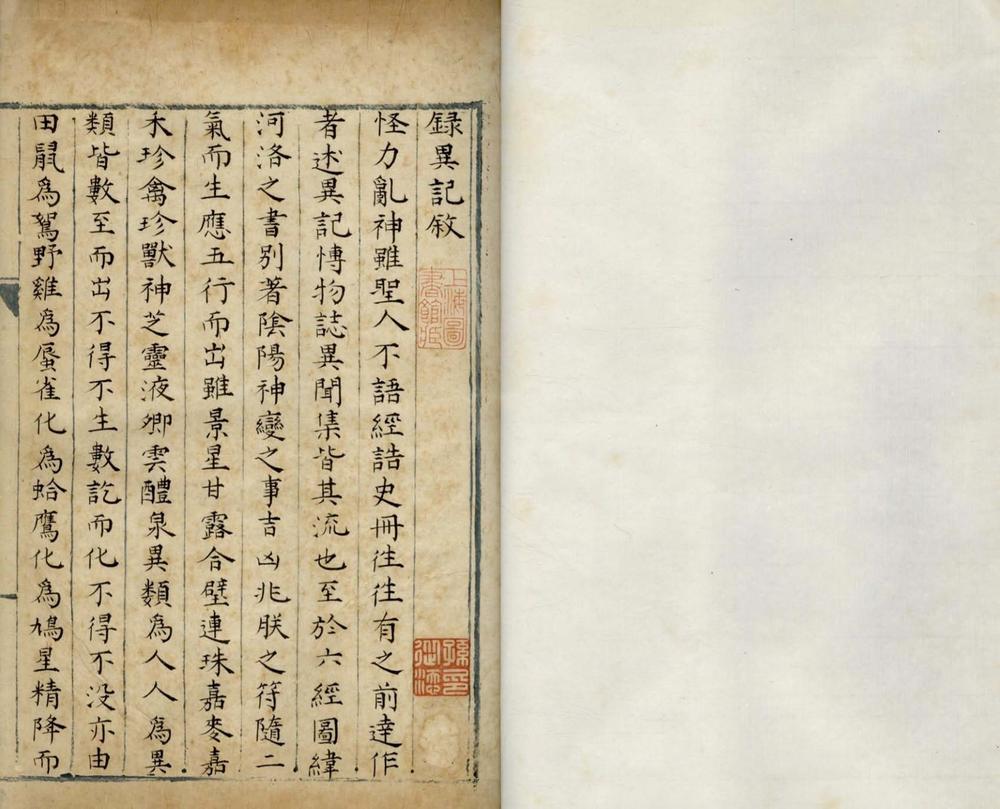 録異記敘
上海圖書館藏
孫印從添
怪力亂神雖聖人不語經誥史冊徃徃有之前達作
者述異記愽物誌異聞集皆其流也至於六經圖緯
河洛之書別著陰陽神變之事吉凶兆朕之符隨二
氣而生應五行而出雖景星甘露合璧連珠嘉麥嘉
禾珍禽珍獸神芝靈液卿雲醴泉異類為人人為異
類皆數至而出不得不生數訖而化不得不没亦由
田鼠為鴽野雞為蜃雀化為蛤鷹化為鳩星精降而